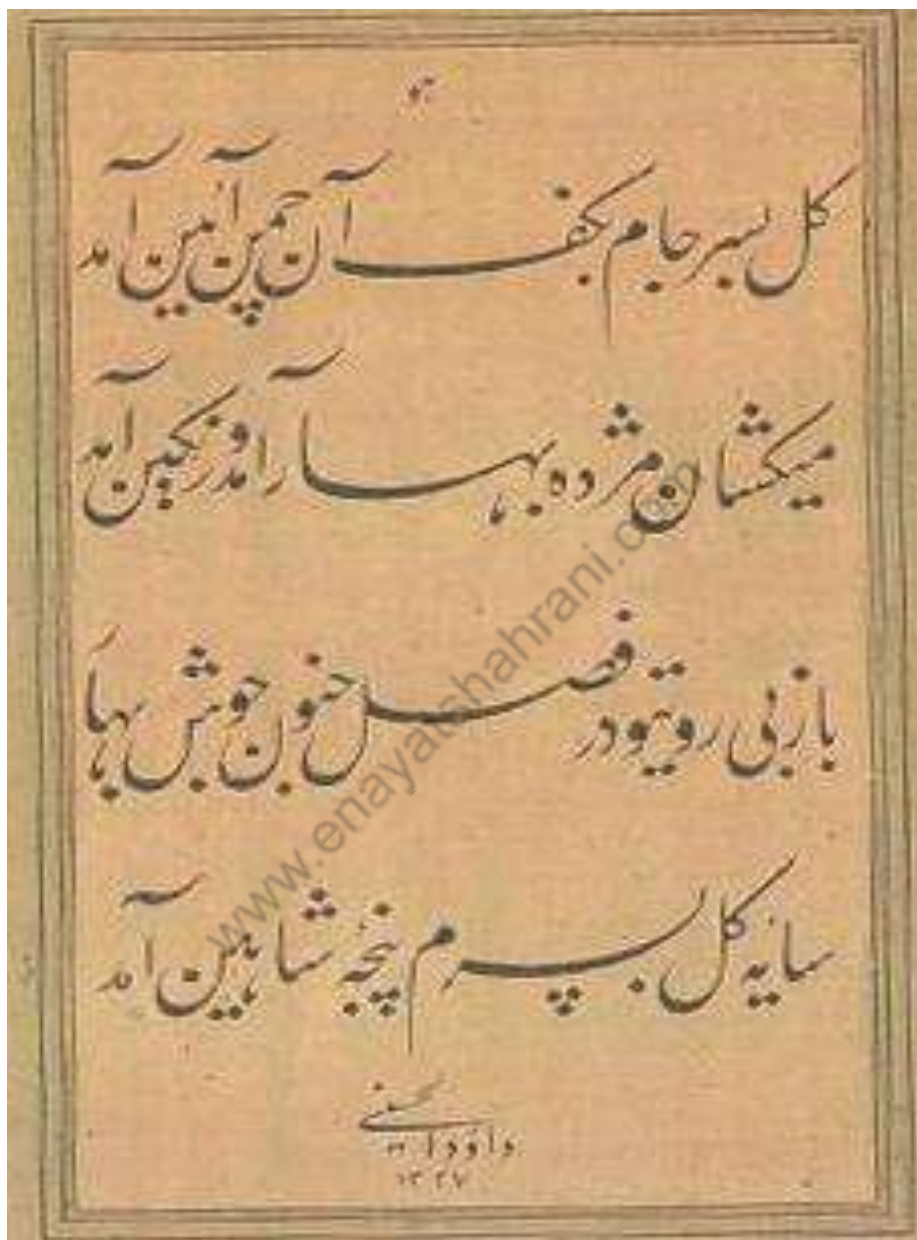 هو
کل بسر جام بکف آن چمن آئین آمد
میکشان مژده بهار آمد و رنگین آمد
باز بی رو یتو در فصل جنون جوش بهار
سایه کل بسرم پنجه شاهین آمد
داؤد الحسینی
۱۳۲۷
www.enayatshahrani.com